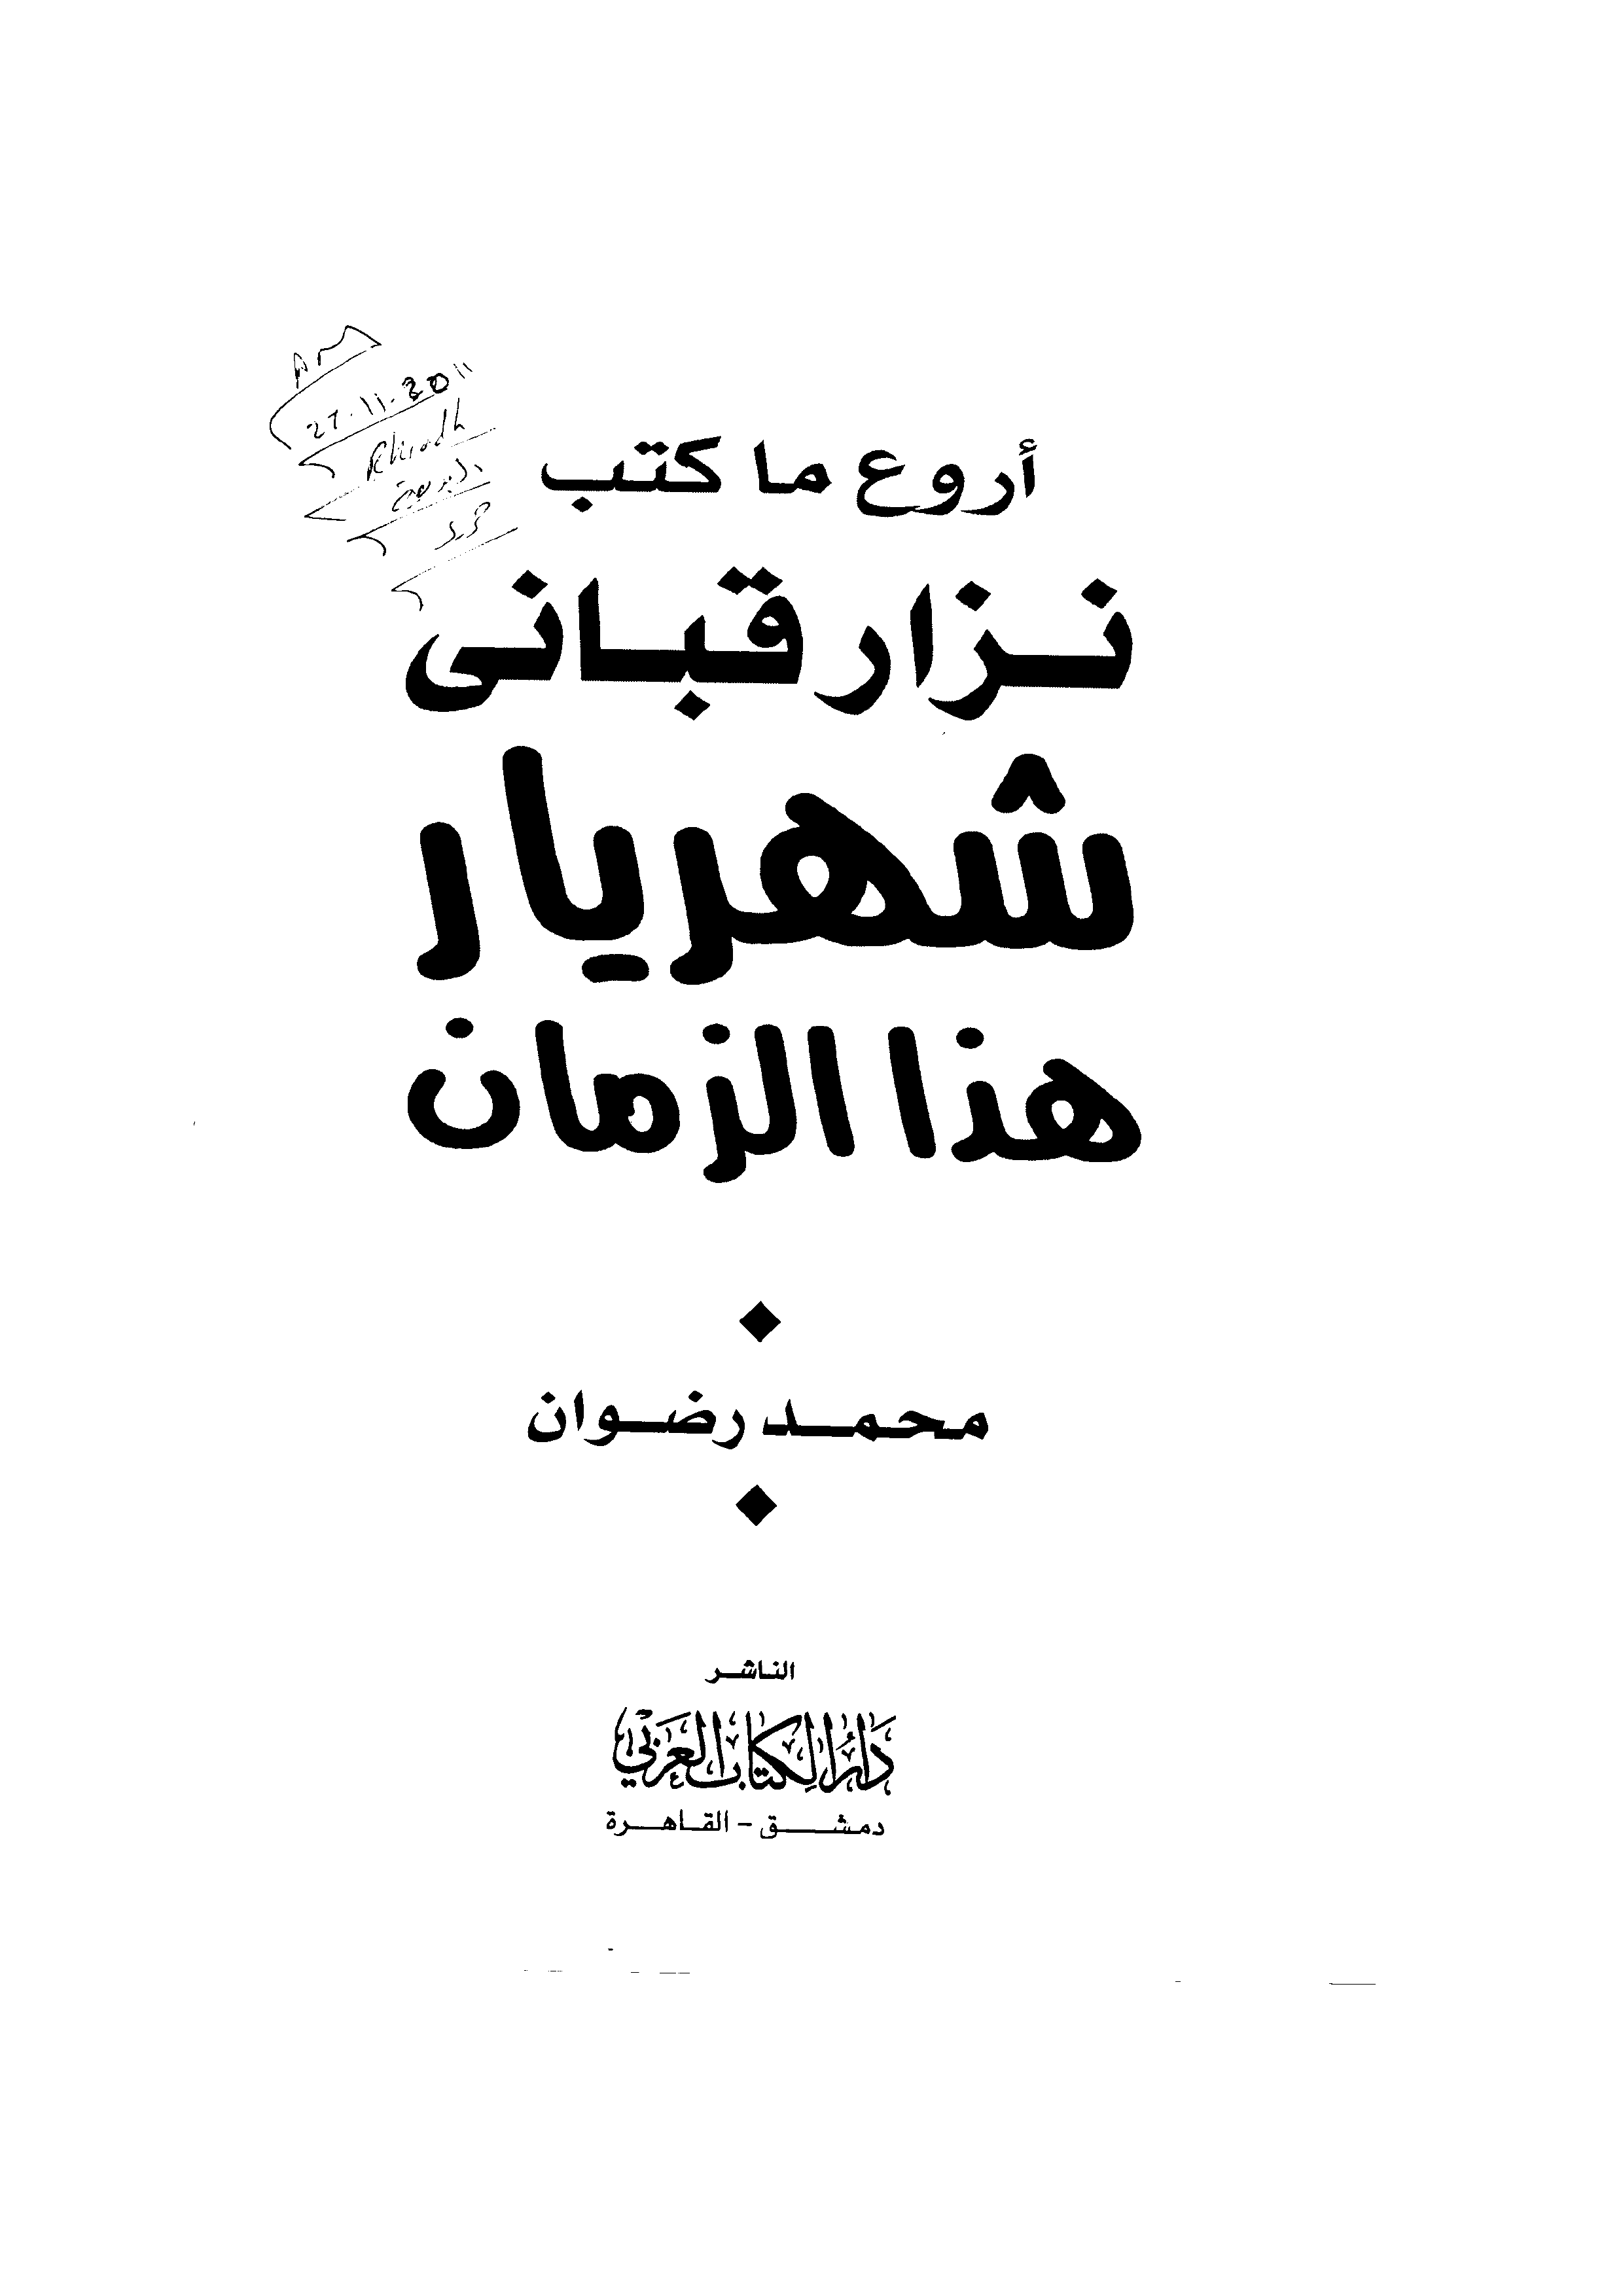 27.11.2011
أروع ما كتب
نزار قبانى
شهريار
هذا الزمان
محمد رضوان
الناشر
دَارُ الكِتَابِ العَرَبي
دمشق - القاهرة